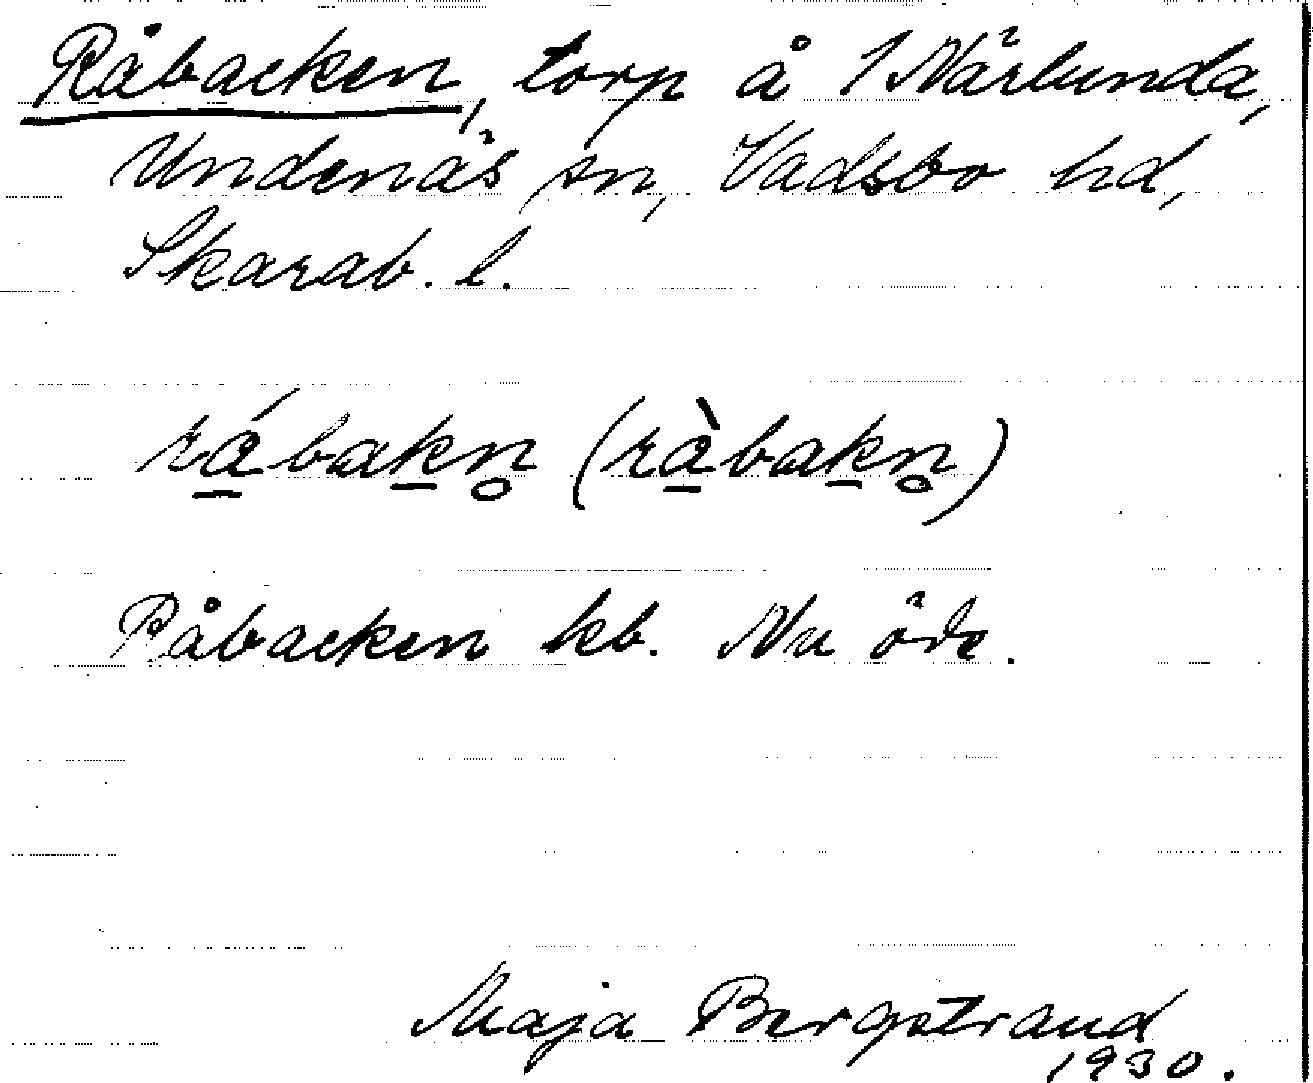 Råbacken, torp å 1 Närlunda,
Undenäs sn, Vadsbo hd,
Skarab. l.
rábakn̥ (ràbakn̥)
Råbacken kb. Nu öde.
Maja Bergstrand
1930.